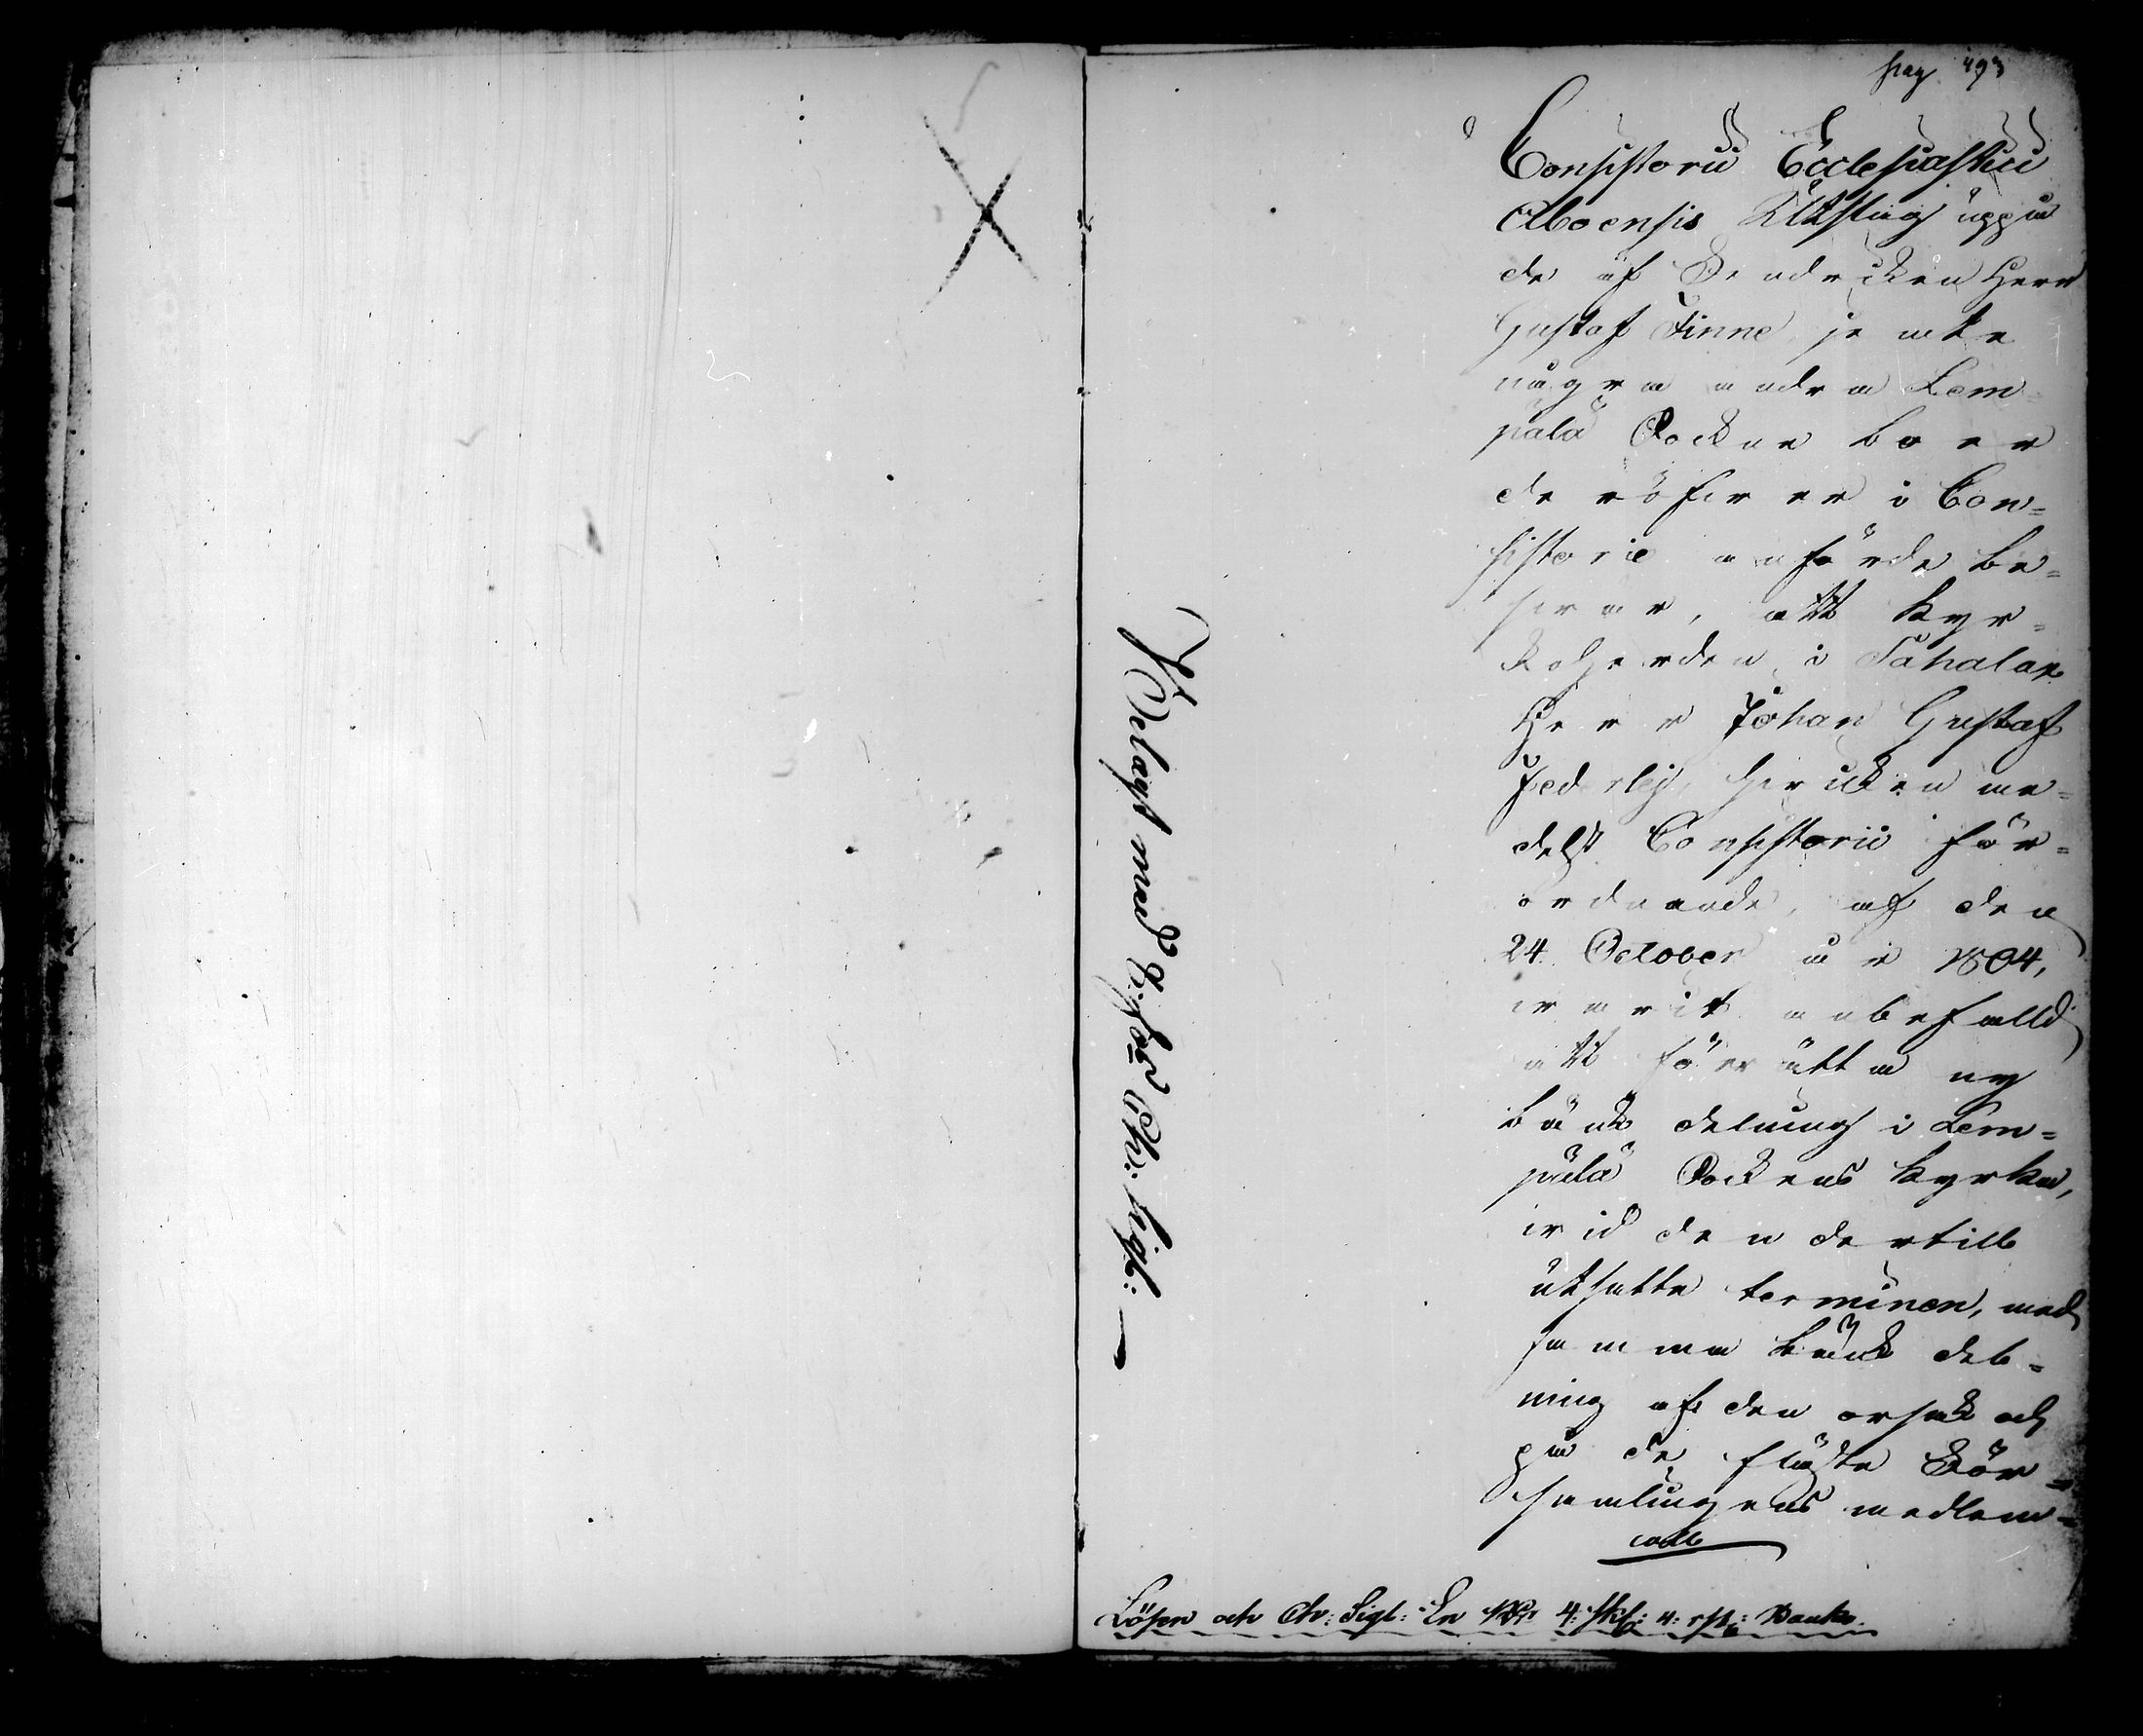 pag 493
Consistorii Ecclesiastici
Aboensis Utslag uppå
de af Fendricken Herr
Gustaf Finne jemte
några andra Lem
pälä Sockne boer
de röster i Con=
sistorie anförde be=
svar, att Kyr=
koherden i Sahalax
Herr Johan Gustaf
Federleij, hvilken me=
delst Consistorii för=
ordnande, af den
24 October år 1804,
varit anbefalld
att förrätta ny
bänk delning i Lem=
pälä Sockens kyrka,
vid den dertill
utsatte terminen, med
samma bänk del=
ning af den orsak och
på de flåste För=
samlingens medlem=
Belagt med B: fogd Ch: sigl:
Lösen och Ch: Sigl: En Rdr 4: sk: 4: rst: Banko.